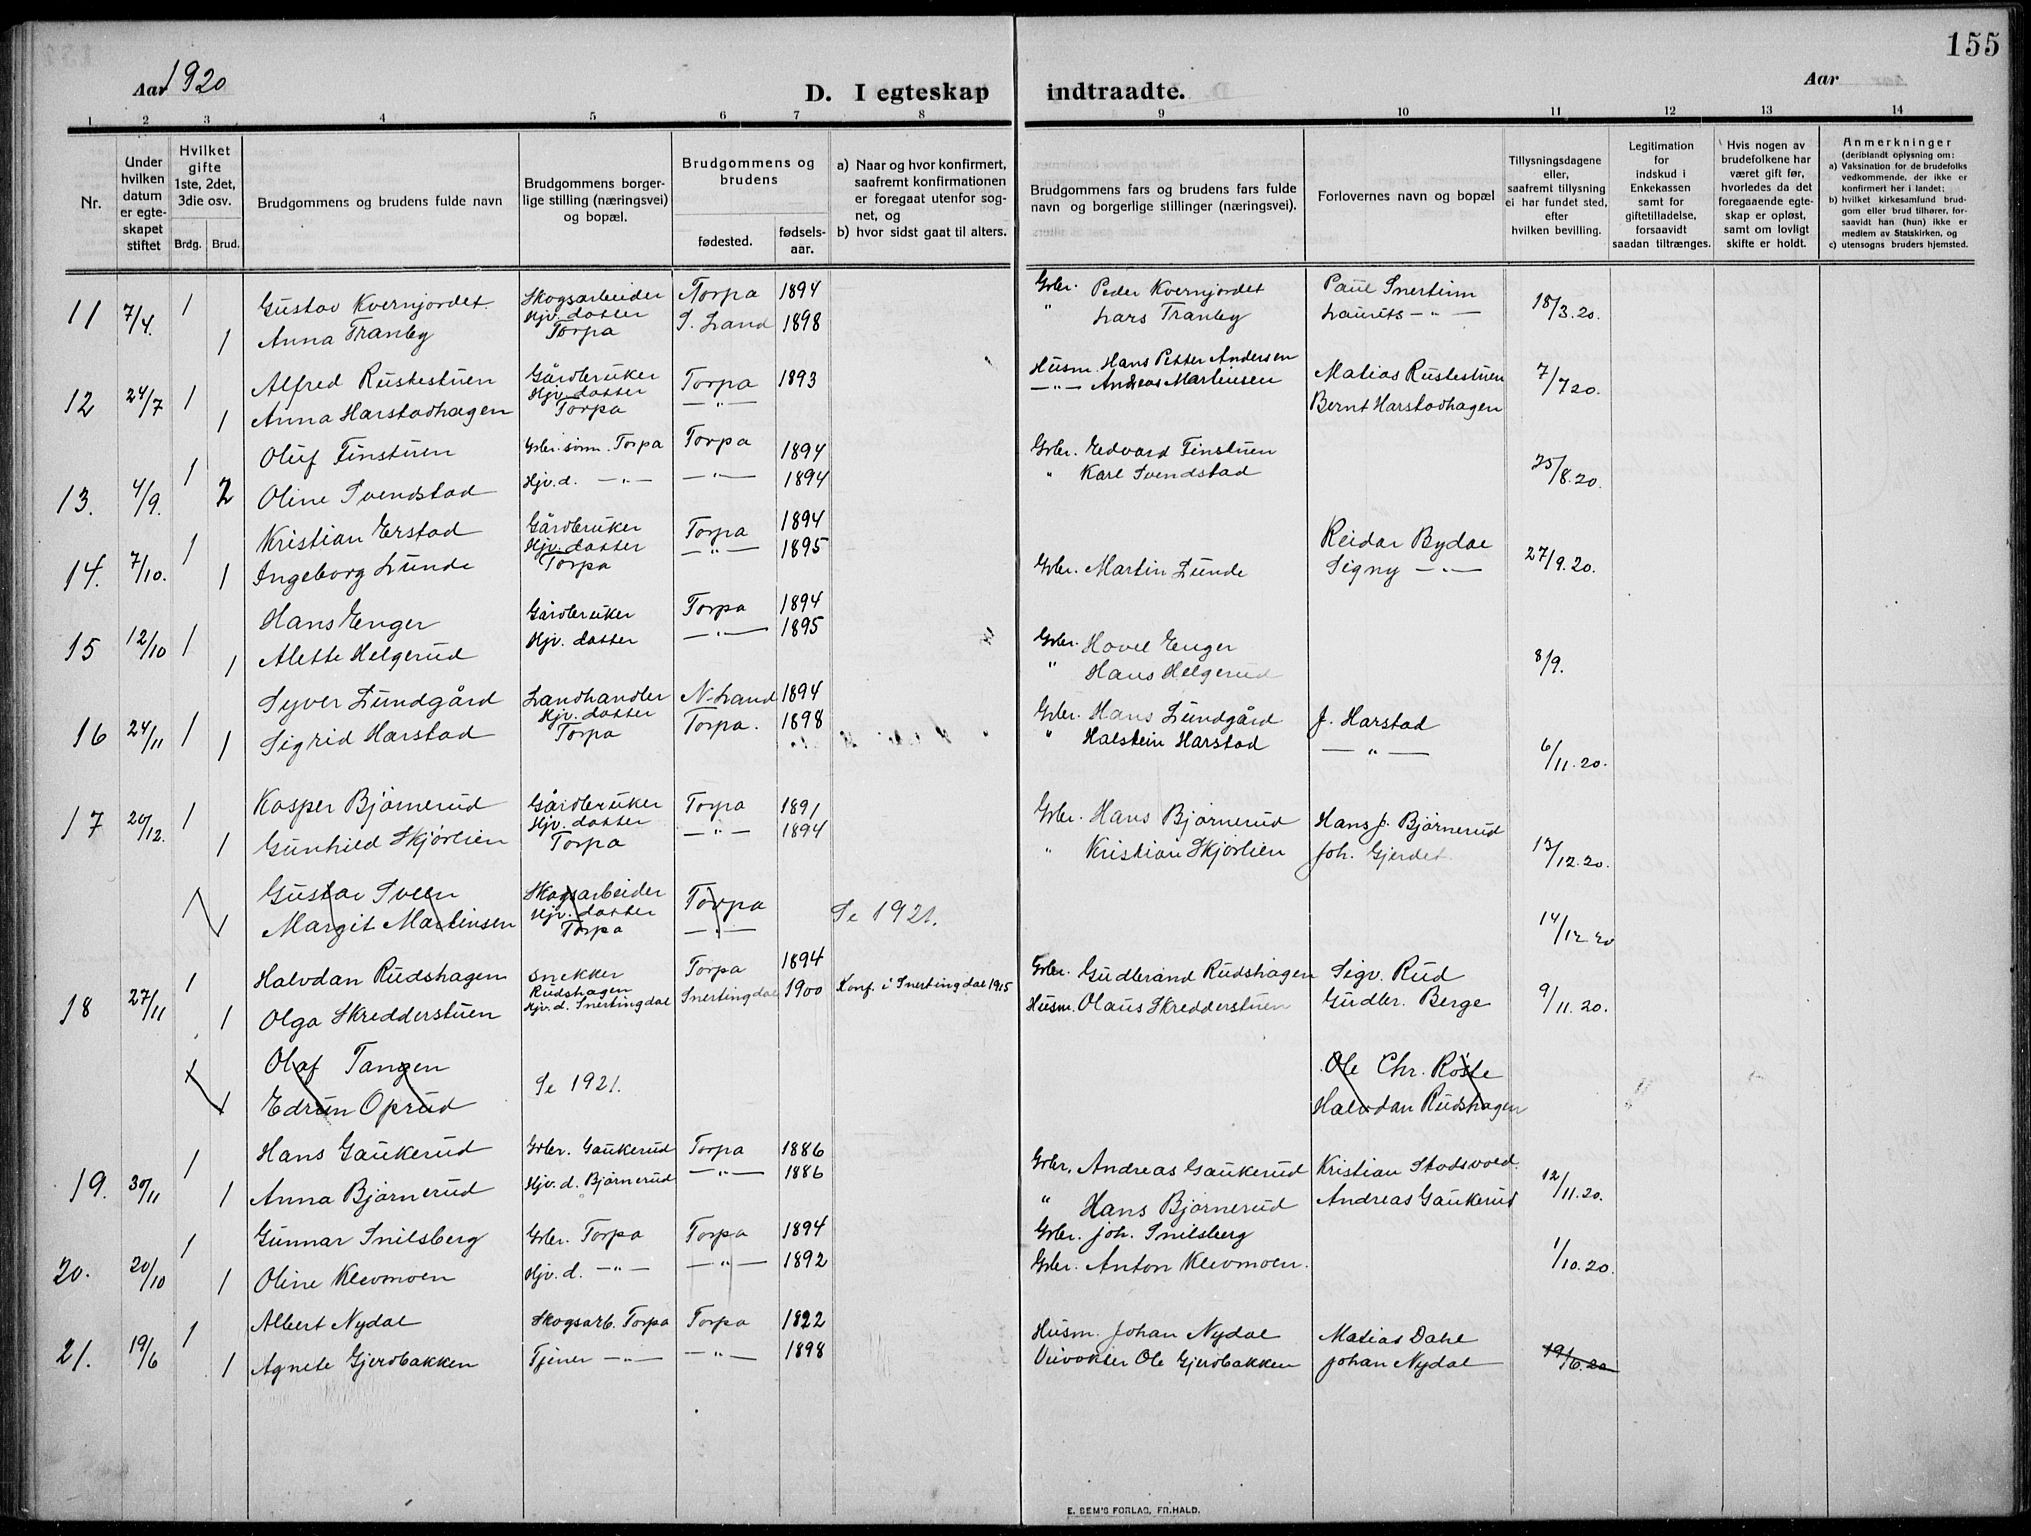 155
Aar 1920
D. I egteskap indtraadte.
Aar
1 2 3 4 5 6 7 8 9 10 11 12 13 14
Nr.
Under hvilken datum er egteskapet stiftet
Hvilket gifte 1ste, 2det, 3die osv.
Brdg. Brud.
Brudgommens og brudens fulde navn
Brudgommens borgerlige stilling (næringsvei) og bopæl.
Brudgommens og brudens
fødested.
fødselsaar.
a) Naar og hvor konfirmert, saafremt konfirmationen er foregaat utenfor sognet, og
b) hvor sidst gaat til alters.
Brudgommens fars og brudens fars fulde navn og borgerlige stillinger (næringsvei).
Forlovernes navn og bopæl
Tillysningsdagene eller, saafremt tillysning ei har fundet sted, efter hvilken bevilling.
Legitimation for indskud i Enkekassen samt for giftetilladelse, forsaavidt saadan tiltrænges.
Hvis nogen av brudefolkene har været gift før, hvorledes da det foregaaende egteskap er opløst, samt om lovligt skifte er holdt.
Anmerkninger (deriblandt oplysning om:
a) Vaksination for de brudefolks vedkommende, der ikke er konfirmert her i landet;
b) hvilket kirkesamfund brudgom eller brud tilhører, forsaavidt han (hun) ikke er medlem av Statskirken, og
c) utensogns bruders hjemsted.
11 7/4. 1 Gustav Kvernjordet Skogsarbeider Torpa 1894 Grbr. Peder Kvernjordet Paul Snertinn 18/3.20.
1 Anna Tranby Hjv. datter Torpa S. Land 1898 " Lars Tranby Laurits —"—
12 24/7 1 Alfred Rustestuen Gårdbruker Torpa 1893 Husm. Hans Petter Andersen Matias Rustestuen 7/7 20.
1 Anna Harstadhagen Hjv. datter Torpa —"— —"— Andreas Martinsen Bernt Harstadhagen
13. 4/9. 1 Oluf Finstuen Grbr. sønn. Torpa Torpa 1894 Grbr. Edvard Finstuen 25/8.20.
2 Oline Svendstad Hjv. d. —"— —"— 1894 " Karl Svendstad
14. 7/10. 1 Kristian Erstad Gårdbruker Torpa 1894 Reidar Bydal 27/9.20.
1 Ingeborg Lunde Hjv. datter Torpa —"— 1895 Grbr. Martin Lunde Signy —"—
15 12/10 1 Hans Enger Gårdbruker Torpa 1894 Grbr. Hovel Enger 8/9.
1 Alette Helgerud Hjv. datter —"— 1895 " Hans Helgerud
16 24/11 1 Syver Lundgård Landhandler N. Land 1894 Grbr. Hans Lundgård J. Harstad 6/11.20.
1 Sigrid Harstad Hjv. datter Torpa Torpa. 1898 " Halstein Harstad —"—
17 20/12. 1 Kasper Bjørnerud Gårdbruker Torpa 1891 Grbr. Hans Bjørnerud Hans J. Bjørnerud 13/12.20.
1 Gunhild Skjørlien Hjv. datter Torpa —"— 1894 " Kristian Skjørlien Joh. Gjerdet.
1 Gustav Sveen Skogsarbeider Torpa Se 1921. 14/12.20
1 Margit Martinsen Hjv. datter Torpa —"—
18 27/11 1 Halvdan Rudshagen Snekker Rudshagen Torpa 1894 Grbr. Gudbrand Rudshagen Sigv. Rud 9/11.20.
1 Olga Skredderstuen Hjv. d. Snertingdal Snertingdal 1900 Konf. i Snertingdal 1915 Husm. Olaus Skredderstuen Gudbr. Berge
1 Olaf Tangen Se 1921. Ole Chr. Røste
1 Edrun Oprud Halvdan Rudshagen
19. 30/11 1 Hans Gaukerud Grbr. Gaukerud Torpa 1886 Grbr. Andreas Gaukerud Kristian Stadsvold. 12/11.20.
1 Anna Bjørnerud Hjv. d. Bjørnerud —"— 1886 " Hans Bjørnerud Andreas Gaukerud
20. 20/10 1 Gunnar Snilsberg Grbr. Torpa Torpa 1894 Grbr. Joh. Snilsberg 1/10.20.
1 Oline Klevmoen Hjv. d. —"— —"— 1892 Grbr. Anton Klevmoen.
21. 19/6 1 Albert Nydal Skogsarb. Torpa Torpa 1892 Husm. Johan Nydal Matias Dahl 19/6.20
1 Agnete Gjerdbakken Tjener —"— —"— 1898 Veivokter Ole Gjerdbakken Johan Nydal
E. SEM'S FORLAG, FR.HALD.